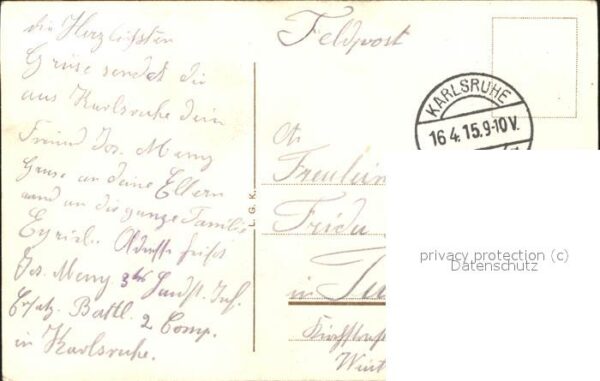 die Herzlichsten
Grüse sendet die
aus Karlsruhe dein
Freund Jos. Meny
Gruse an deine Eltern
und an die ganze Familie
Adresse heist
Jos. Meny 3te Landst. Inf.
Ersatz. Battl. 2 Comp.
in Karlsruhe.
L. G. K.
Feldpost
KARLSRUHE
16 4. 15. 9-10 V.
An
Freulein
Frida
in
privacy protection (c)
Datenschutz